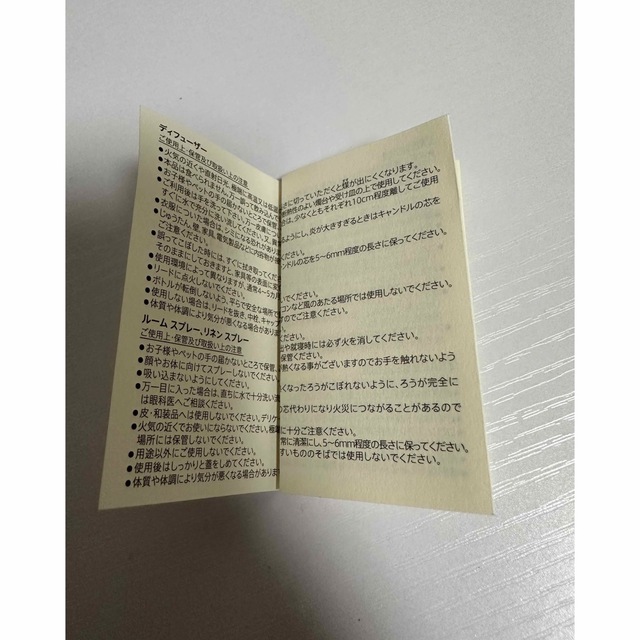 ディフューザー
ご使用上・保管及び取扱い上の注意
●火気の近くや直射日光、極端に高温又は低温
●本品は食べられません。万一飲み込んで
●お子様やペットの手の届かない
●ご利用後は手をあらって下さい。万一皮膚につい
すぐに水で充分に洗い流してください。又、異
●衣服についた場合は、シミになる恐れがありま
●じゅうたん、壁、家具、電気製品などに内容物が接
ご注意ください。
●誤ってこぼした時には、すぐに拭き取ってくださ
そのままにしておきますと、家具等の表面に変
●使用環境によって異なりますが、通常4〜5カ月
●リードに点火しないでください。
●ボトルが転倒しないよう、平らで安全な場所で
●使用しない場合は、リードを抜き、中栓、キャップ
●体質や体調により気分が悪くなる場合がありま
ルーム スプレー、リネン スプレー
ご使用上・保管及び取扱い上の注意
●お子様やペットの手の届かないところで保管、
●顔やお体に向けてスプレーしないでください。
●吸い込まないようにしてください。
●万一目に入った場合は、直ちに水で十分洗い流
は眼科医へご相談ください。
●皮・和装品へは使用しないでください。デリケ
●火気の近くでお使いにならないでください。極端
場所には保管しないでください。
●用途以外にご使用しないでください。
●使用後はしっかりと蓋をしめてください。
●体質や体調により気分が悪くなる場合がありま
さに切っていただくと煤が出にくくなります。
断熱性のよい燭台や受け皿の上で使用してください。
合は、少なくともそれぞれ10cm程度離してご使用
るようにし、炎が大きすぎるときはキャンドルの芯を
ください。
ンドルの芯を5〜6mm程度の長さに保ってください。
いでください。
コンなど風のあたる場所では使用しないでください。
すのでご注意ください。
る。
出や就寝時には必ず火を消してください。
保管ください。
が熱くなる事がございますのでお手を触れないよう
くなったろうがこぼれないように、ろうが完全に
の芯代わりになり火災につながることがあるので
に十分ご注意ください。
常に清潔にし、5〜6mm程度の長さに保ってください。
すいもののそばでは使用しないでください。